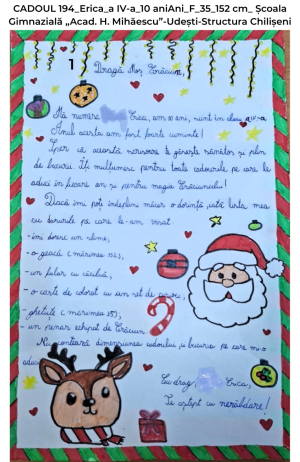 CADOUL 194_Erica_a IV-a_10 aniAni_F_35_152 cm_ Școala
Gimnazială „Acad. H. Mihăescu”-Udești-Structura Chilișeni
1
Dragă Moș Crăciun,
Mă numesc Erica, am 10 ani, sunt în clasa a IV-a.
Anul acesta am fost foarte cuminte!
Sper că această scrisoare te găsește sănătos și plin
de bucurii. Îți mulțumesc pentru toate cadourile pe care le
aduci în fiecare an și pentru magia Crăciunului!
Dacă îmi poți îndeplini măcar o dorință, iată lista mea
cu darurile pe care le-am visat:
-îmi doresc un slime,
-o geacă (mărimea 152),
-un fular cu căciulă,
-o carte de colorat cu un set de carioci,
-ghetuțe (mărimea 35),
- un penar echipat de Crăciun.
Nu contează dimensiunea cadoului, ci bucuria pe care mi-o
aduci
Cu drag, Erica,
Te aștept cu nerăbdare!